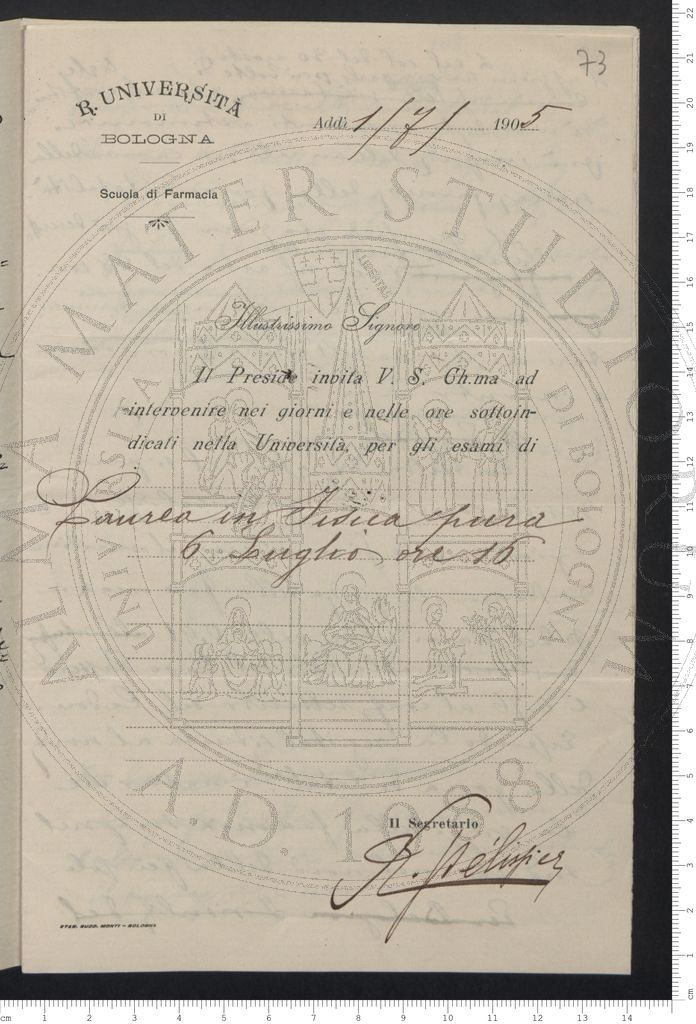 73
R. UNIVERSITÀ
DI
BOLOGNA
Addì 1/7/ 1905
Scuola di Farmacia
Illustrissimo Signore
Il Preside invita V. S. Ch.ma ad
intervenire nei giorni e nelle ore sottoin-
dicati nella Università, per gli esami di
Laurea in Fisica pura
6 Luglio ore 16
Il Segretario
STAB. SUCC. MONTI - BOLOGNA
ALMA MATER STUDIORUM
UNIVERSITÀ DI BOLOGNA
A.D. 1088
LIBERTAS
cm 1 2 3 4 5 6 7 8 9 10 11 12 13 14
22
21
20
19
18
17
16
15
14
13
12
11
10
9
8
7
6
5
4
3
2
1
cm